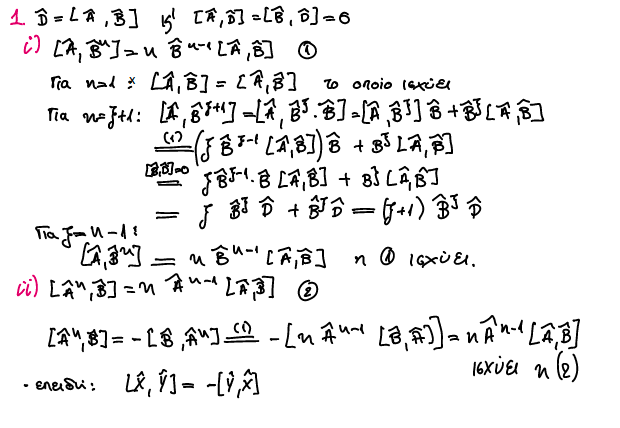 1 D̂ = [Â, B̂] κ' [Â, D̂] = [B̂, D̂] = 0
i) [Â, B̂ⁿ] = n B̂ⁿ⁻¹ [Â, B̂] ①
Για n=1 : [Â, B̂] = [Â, B̂] το οποίο ισχύει
Για n=j+1: [Â, B̂ʲ⁺¹] = [Â, B̂ʲ·B̂] = [Â, B̂ʲ] B̂ + B̂ʲ [Â, B̂]
=(1)= (j B̂ʲ⁻¹ [Â, B̂]) B̂ + Bʲ [Â, B̂]
[B̂, D̂]=0 = j B̂ʲ⁻¹·B̂ [Â, B̂] + Bʲ [Â, B̂]
= j B̂ʲ D̂ + B̂ʲ D̂ = (j+1) B̂ʲ D̂
Για j=n-1:
[Â, B̂ⁿ] = n B̂ⁿ⁻¹ [Â, B̂] η ① ισχύει.
ii) [Âⁿ, B̂] = n Âⁿ⁻¹ [Â, B̂] ②
[Âⁿ, B̂] = -[B̂, Âⁿ] =(1)= -[n Âⁿ⁻¹ [B̂, Â]] = n Âⁿ⁻¹ [Â, B̂]
ισχύει η (2)
· επειδή: [X̂, Ŷ] = -[Ŷ, X̂]